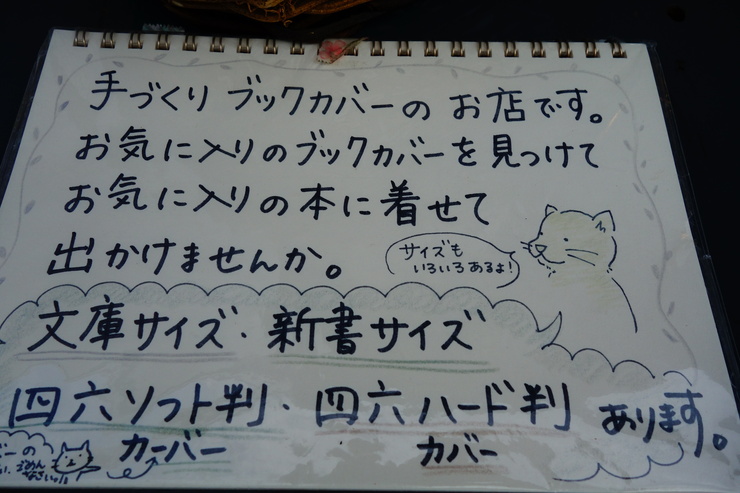 手づくり ブックカバーの お店です。
お気に入りのブックカバーを見つけて
お気に入りの本に着せて
出かけませんか。
サイズも
いろいろあるよ!
文庫サイズ・新書サイズ
四六ソフト判・四六ハード判 あります。
カーバー カバー
ごめん
なさいっ!!